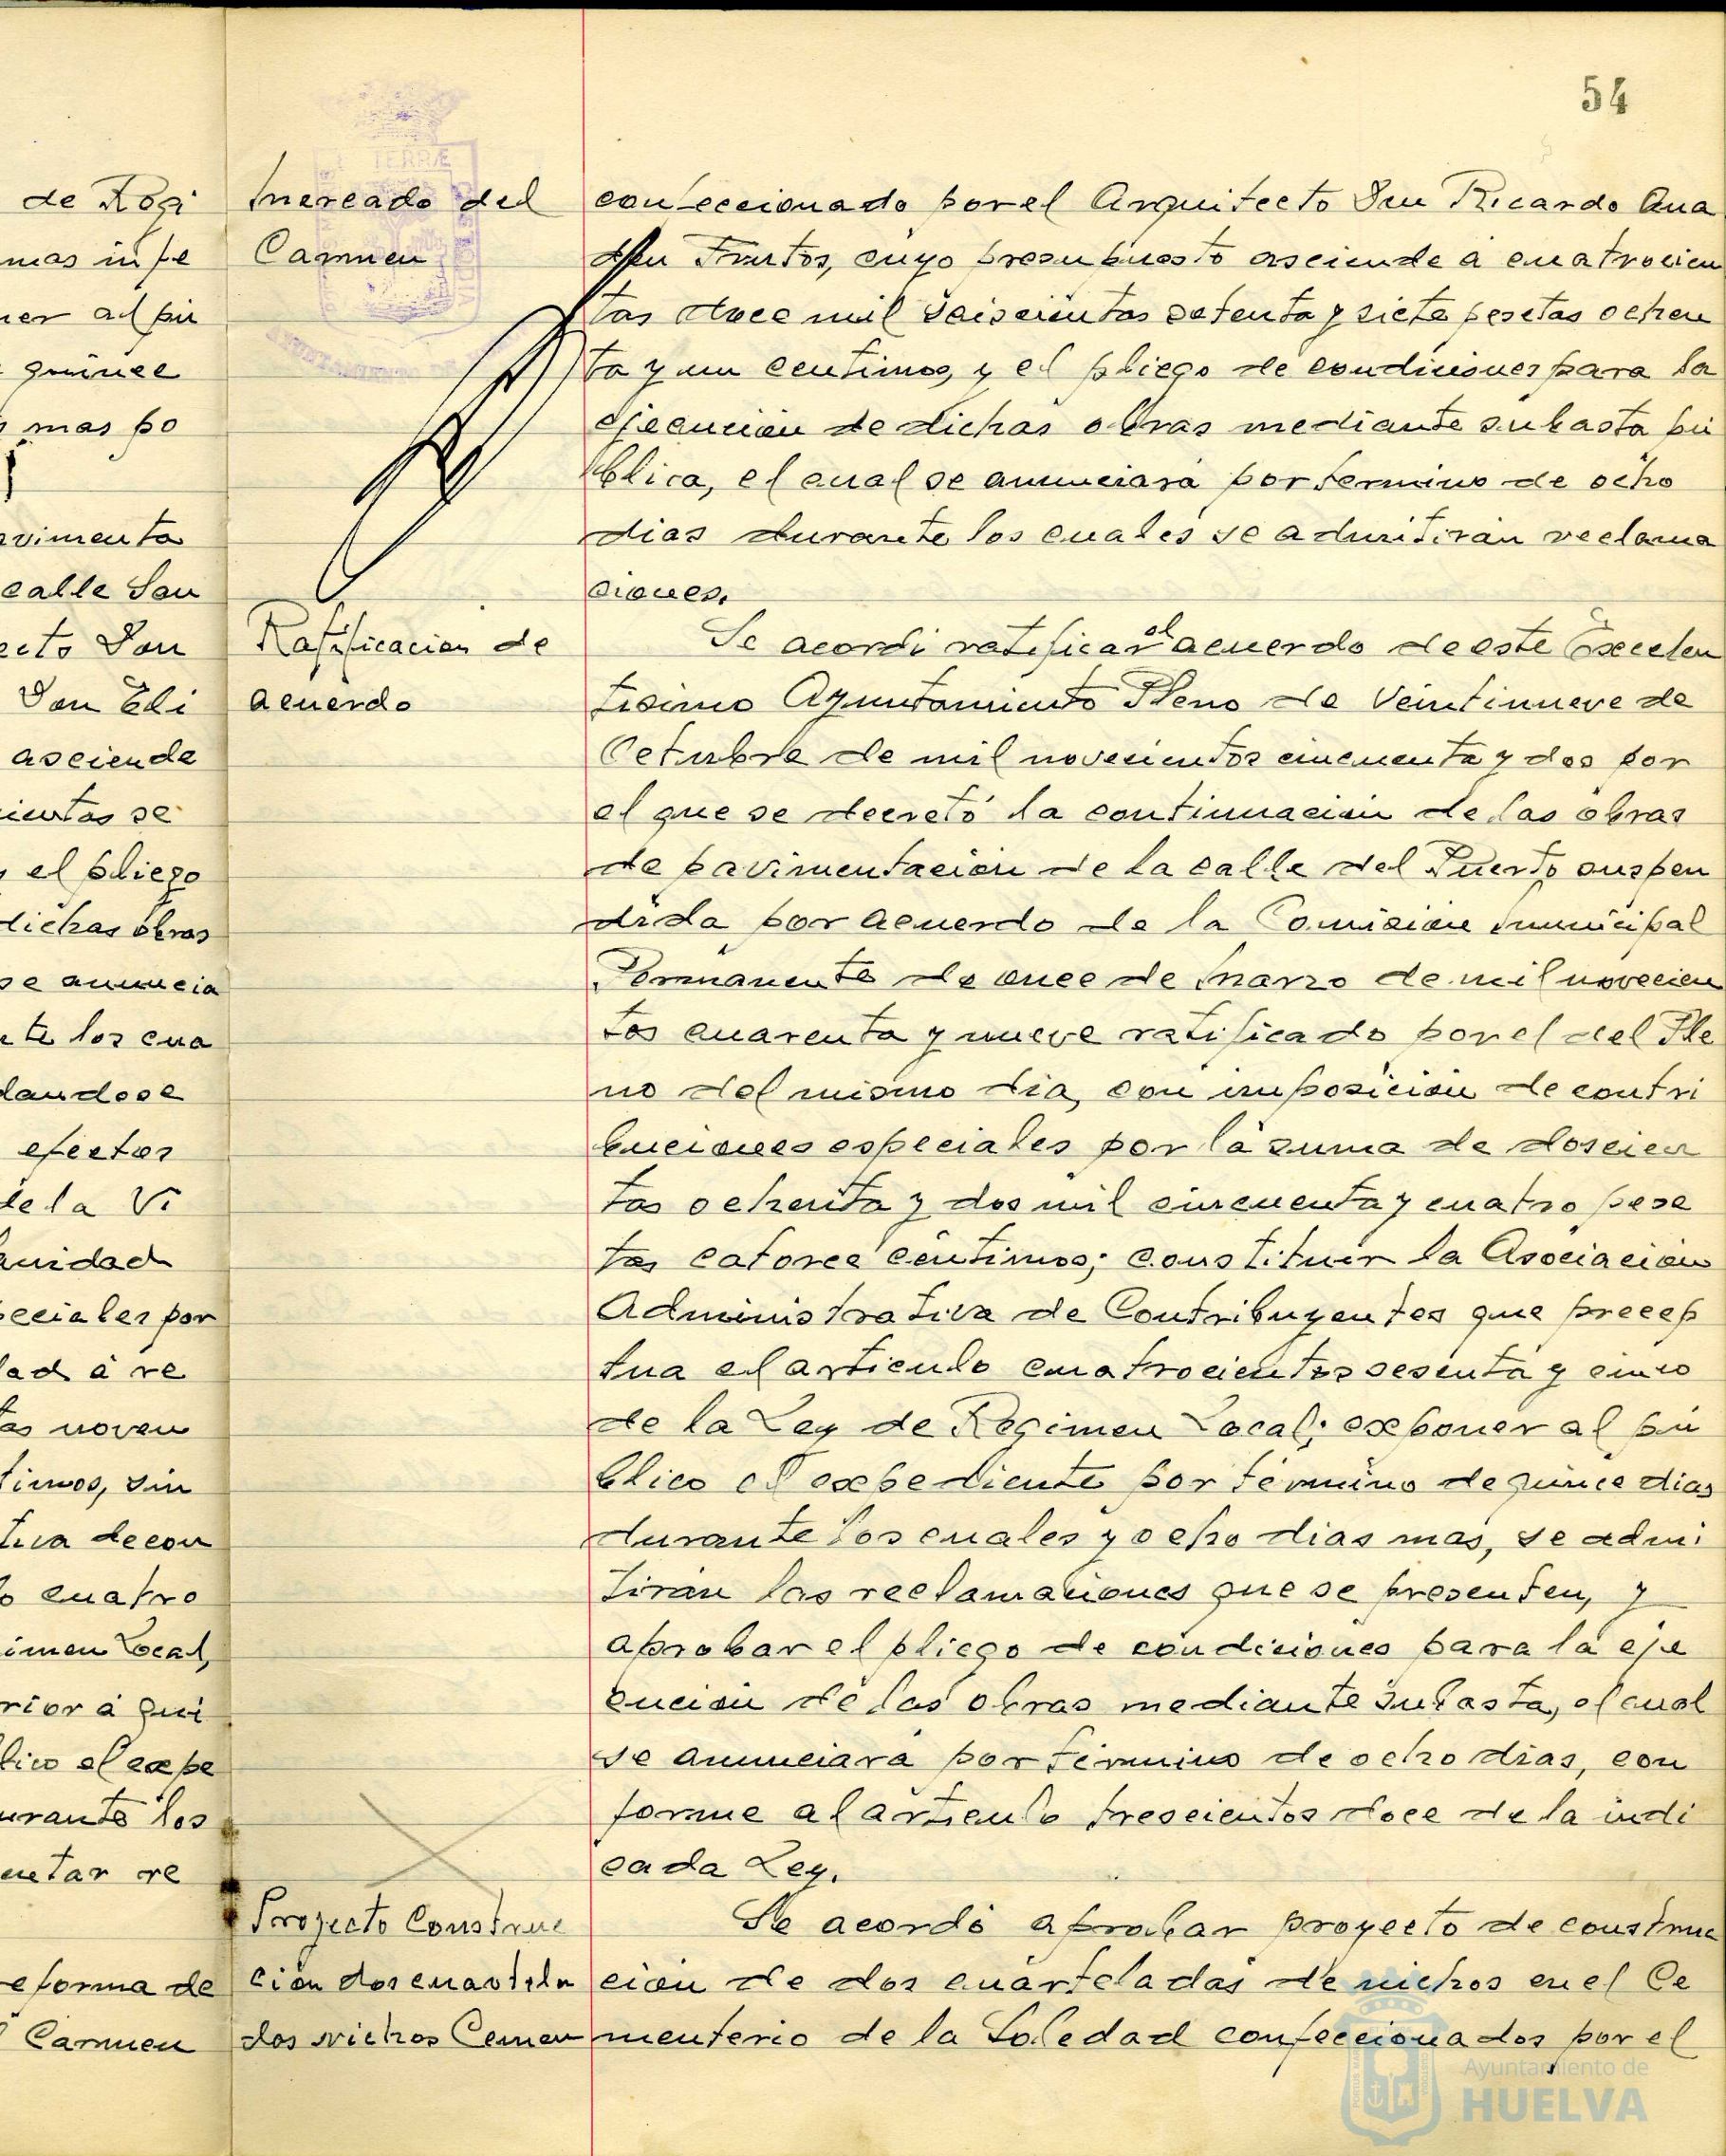 54
de Rogi
mas infe
ner al pú
quince
mas po
avimenta
calle San
ecto Don
Don Eli
asciende
cientas se
el pliego
dichas obras
se anuncia
te los cua
dandose
efectos
de la Vi
anidad
peciales por
dad á re
tas noven
timos, sin
tiva de con
o cuatro
imen Local,
rior á qui
lico el expe
urante los
entar re
eforma de
Carmen
Mercado del
Carmen
TERRÆ
Ratificacion de
acuerdo
Proyecto Construc
ción dos cuartela
das nichos Cemen
confeccionado por el Arquitecto Don Ricardo Ana
don Frutos, cuyo presupuesto asciende á cuatrocien
tas doce mil seiscientas setenta y siete pesetas ochen
ta y un centimos, y el pliego de condiciones para la
ejecución de dichas obras mediante subasta pú
blica, el cual se anunciará por termino de ocho
dias durante los cuales se admitirán reclama
ciones.
Se acordó ratificar el acuerdo de este Excelen
tisimo Ayuntamiento Pleno de Veintinueve de
Octubre de mil novecientos cincuenta y dos por
el que se decretó la continuación de las obras
de pavimentación de la calle del Puerto suspen
dida por acuerdo de la Comision Municipal
Permanente de once de Marzo de mil novecien
tos cuarenta y nueve ratificado por el del Ple
no del mismo dia, con imposición de contri
buciones especiales por la suma de doscien
tas ochenta y dos mil cincuenta y cuatro pese
tas catorce céntimos; constituir la Asociación
Administrativa de Contribuyentes que precep
tua el articulo cuatrocientos sesenta y cinco
de la Ley de Regimen Local; exponer al pú
blico el expediente por término de quince dias
durante los cuales y ocho dias mas, se admi
tirán las reclamaciones que se presenten, y
aprobar el pliego de condiciones para la eje
cución de las obras mediante subasta, el cual
se anunciará por término de ocho dias, con
forme al articulo trescientos doce de la indi
cada Ley.
Se acordó aprobar proyecto de construc
ción de dos cuarteladas de nichos en el Ce
menterio de la Soledad confeccionados por el
Ayuntamiento de
HUELVA